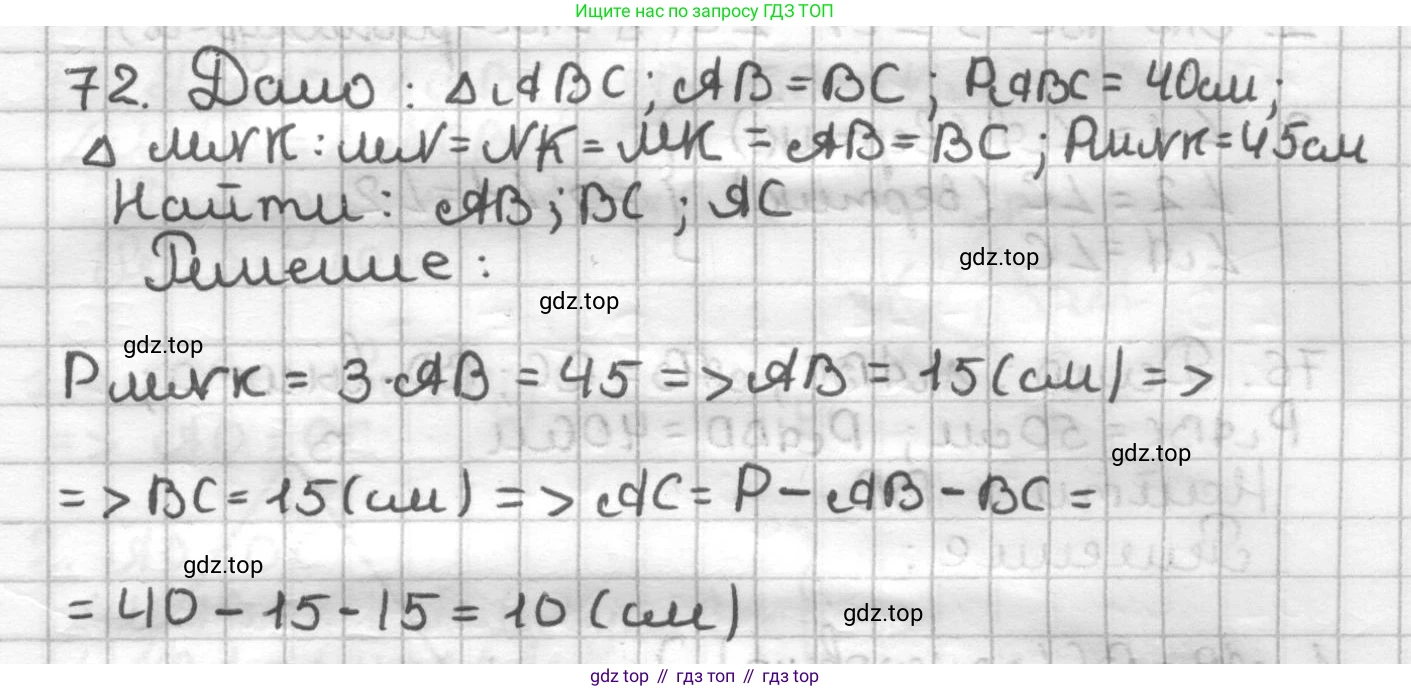 Ищите нас по запросу ГДЗ ТОП
72. Дано: △ABC; AB = BC; P ABC = 40см;
△ MNK: MN = NK = MK = AB = BC; P MNK = 45см
Найти: AB; BC; AC
Решение:
gdz.top
gdz.top
gdz.top
P MNK = 3·AB = 45 => AB = 15(см) =>
gdz.top
=> BC = 15(см) => AC = P – AB – BC =
gdz.top
= 40 – 15 – 15 = 10 (см)
gdz.top
gdz top // гдз топ // гдз top